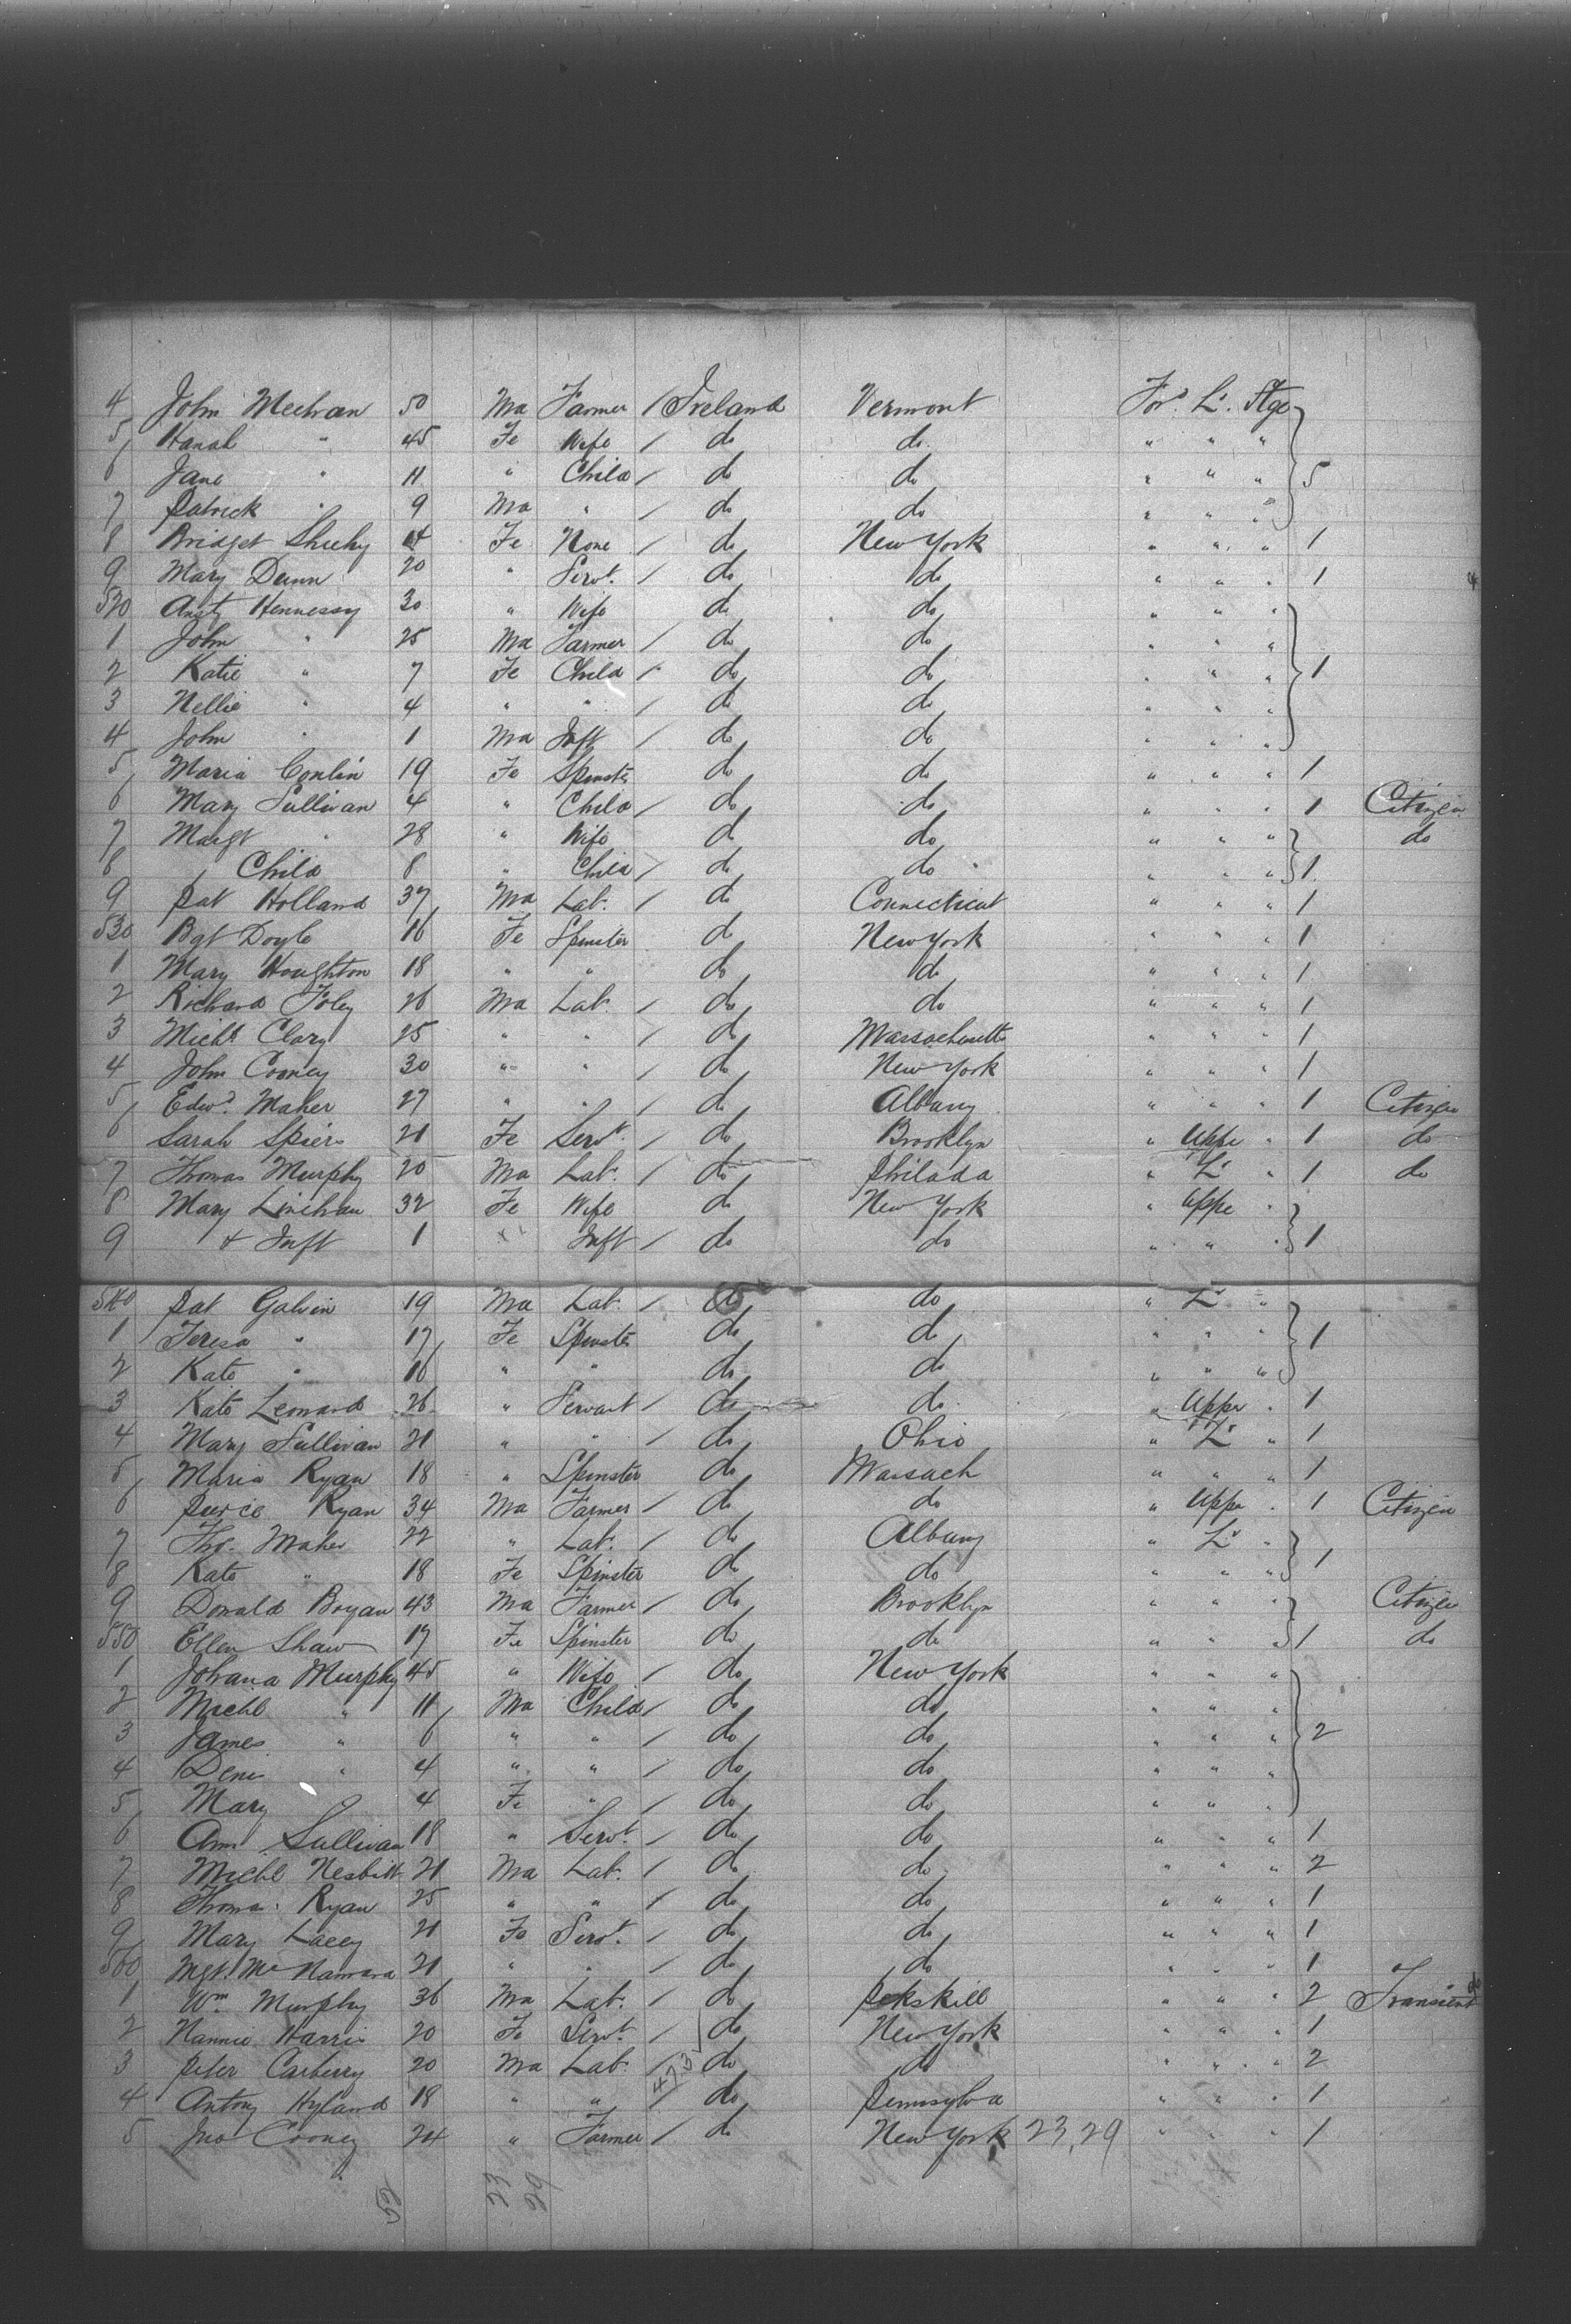 4 John Meehan 50 Ma Farmer / Ireland Vermont For'd L'r Stge
5 Hanah " 45 Fe Wife / do do " " "
6 Jane " 11 " Child / do do " " " 5
7 Patrick " 9 Ma " / do do " " "
8 Bridget Sheehy 14 Fe None / do New York " " " 1
9 Mary Dunn 20 " Servt. / do do " " " 1
520 Ansty Hennessy 30 " Wife do do " " "
1 John " 25 Ma Farmer / do do " " "
2 Katie " 7 Fe Child / do do " " " 1
3 Nellie " 4 " " / do do " " "
4 John " 1 Ma Inft / do do " " "
5 Maria Conlin 19 Fe Spinster do do " " " 1
6 Mary Sullivan 4 " Child / do do " " " 1 Citizen
7 Margt " 28 " Wife do do " " " do
8 Child 8 " Child / do do " " " 1
9 Pat Holland 37 Ma Lab. / do Connecticut " " " 1
530 Bgt Doyle 16 Fe Spinster do New York " " " 1
1 Mary Houghton 18 " " do do " " " 1
2 Richard Foley 26 Ma Lab. / do do " " " 1
3 Michl Clary 25 " " / do Massachusetts " " " 1
4 John Cooney 30 " " / do New York " " " 1
5 Edwd. Maher 27 " " / do Albany " " " 1 Citizen
6 Sarah Spiers 21 Fe Servt. / do Brooklyn " Uppr " 1 do
7 Thomas Murphy 20 Ma Lab. / do Philada " L'r " 1 do
8 Mary Linehan 32 Fe Wife do New York " Uppr "
9 & Inft 1 " Inft / do do " " " 1
540 Pat Galvin 19 Ma Lab. / do do " L'r "
1 Teresa " 17 Fe Spinster do do " " " 1
2 Kate " 16 " " do do " " "
3 Kate Leonard 26 " Servant / do do " Uppr " 1
4 Mary Sullivan 21 " " / do Ohio " L'r " 1
5 Maria Ryan 18 " Spinster do Massach " " " 1
6 Pierce Ryan 34 Ma Farmer / do do " Uppr " 1 Citizen
7 Tho. Maher 22 " Lab. / do Albany " L'r "
8 Kate " 18 Fe Spinster do do " " " 1
9 Donald Bryan 43 Ma Farmer / do Brooklyn " " " Citizen
550 Ellen Shaw 17 Fe Spinster do do " " " 1 do
1 Johana Murphy 45 " Wife / do New York " " "
2 Michl " 11 Ma Child / do do " " "
3 James " 6 " " / do do " " " 2
4 Denis " 4 " " / do do " " "
5 Mary " 4 Fe " / do do " " "
6 Ann Sullivan 18 " Servt. / do do " " " 1
7 Michl Nesbitt 21 Ma Lab. / do do " " " 2
8 Thomas Ryan 25 " " / do do " " " 1
9 Mary Lacey 21 Fe Servt. / do do " " " 1
560 Mgt. McNamara 21 " " / do do " " " 1
1 Wm Murphy 36 Ma Lab. / do Pekskill " " " 2 Transient
2 Nannie Harris 20 Fe Servt. / do New York " " " 1
3 Peter Carberry 20 Ma Lab. / 473 do do " " " 2
4 Antony Hyland 18 " " / do Pennsylva " " " 1
5 Jno Cooney 24 " Farmer / do New York 23,29 " " " 1